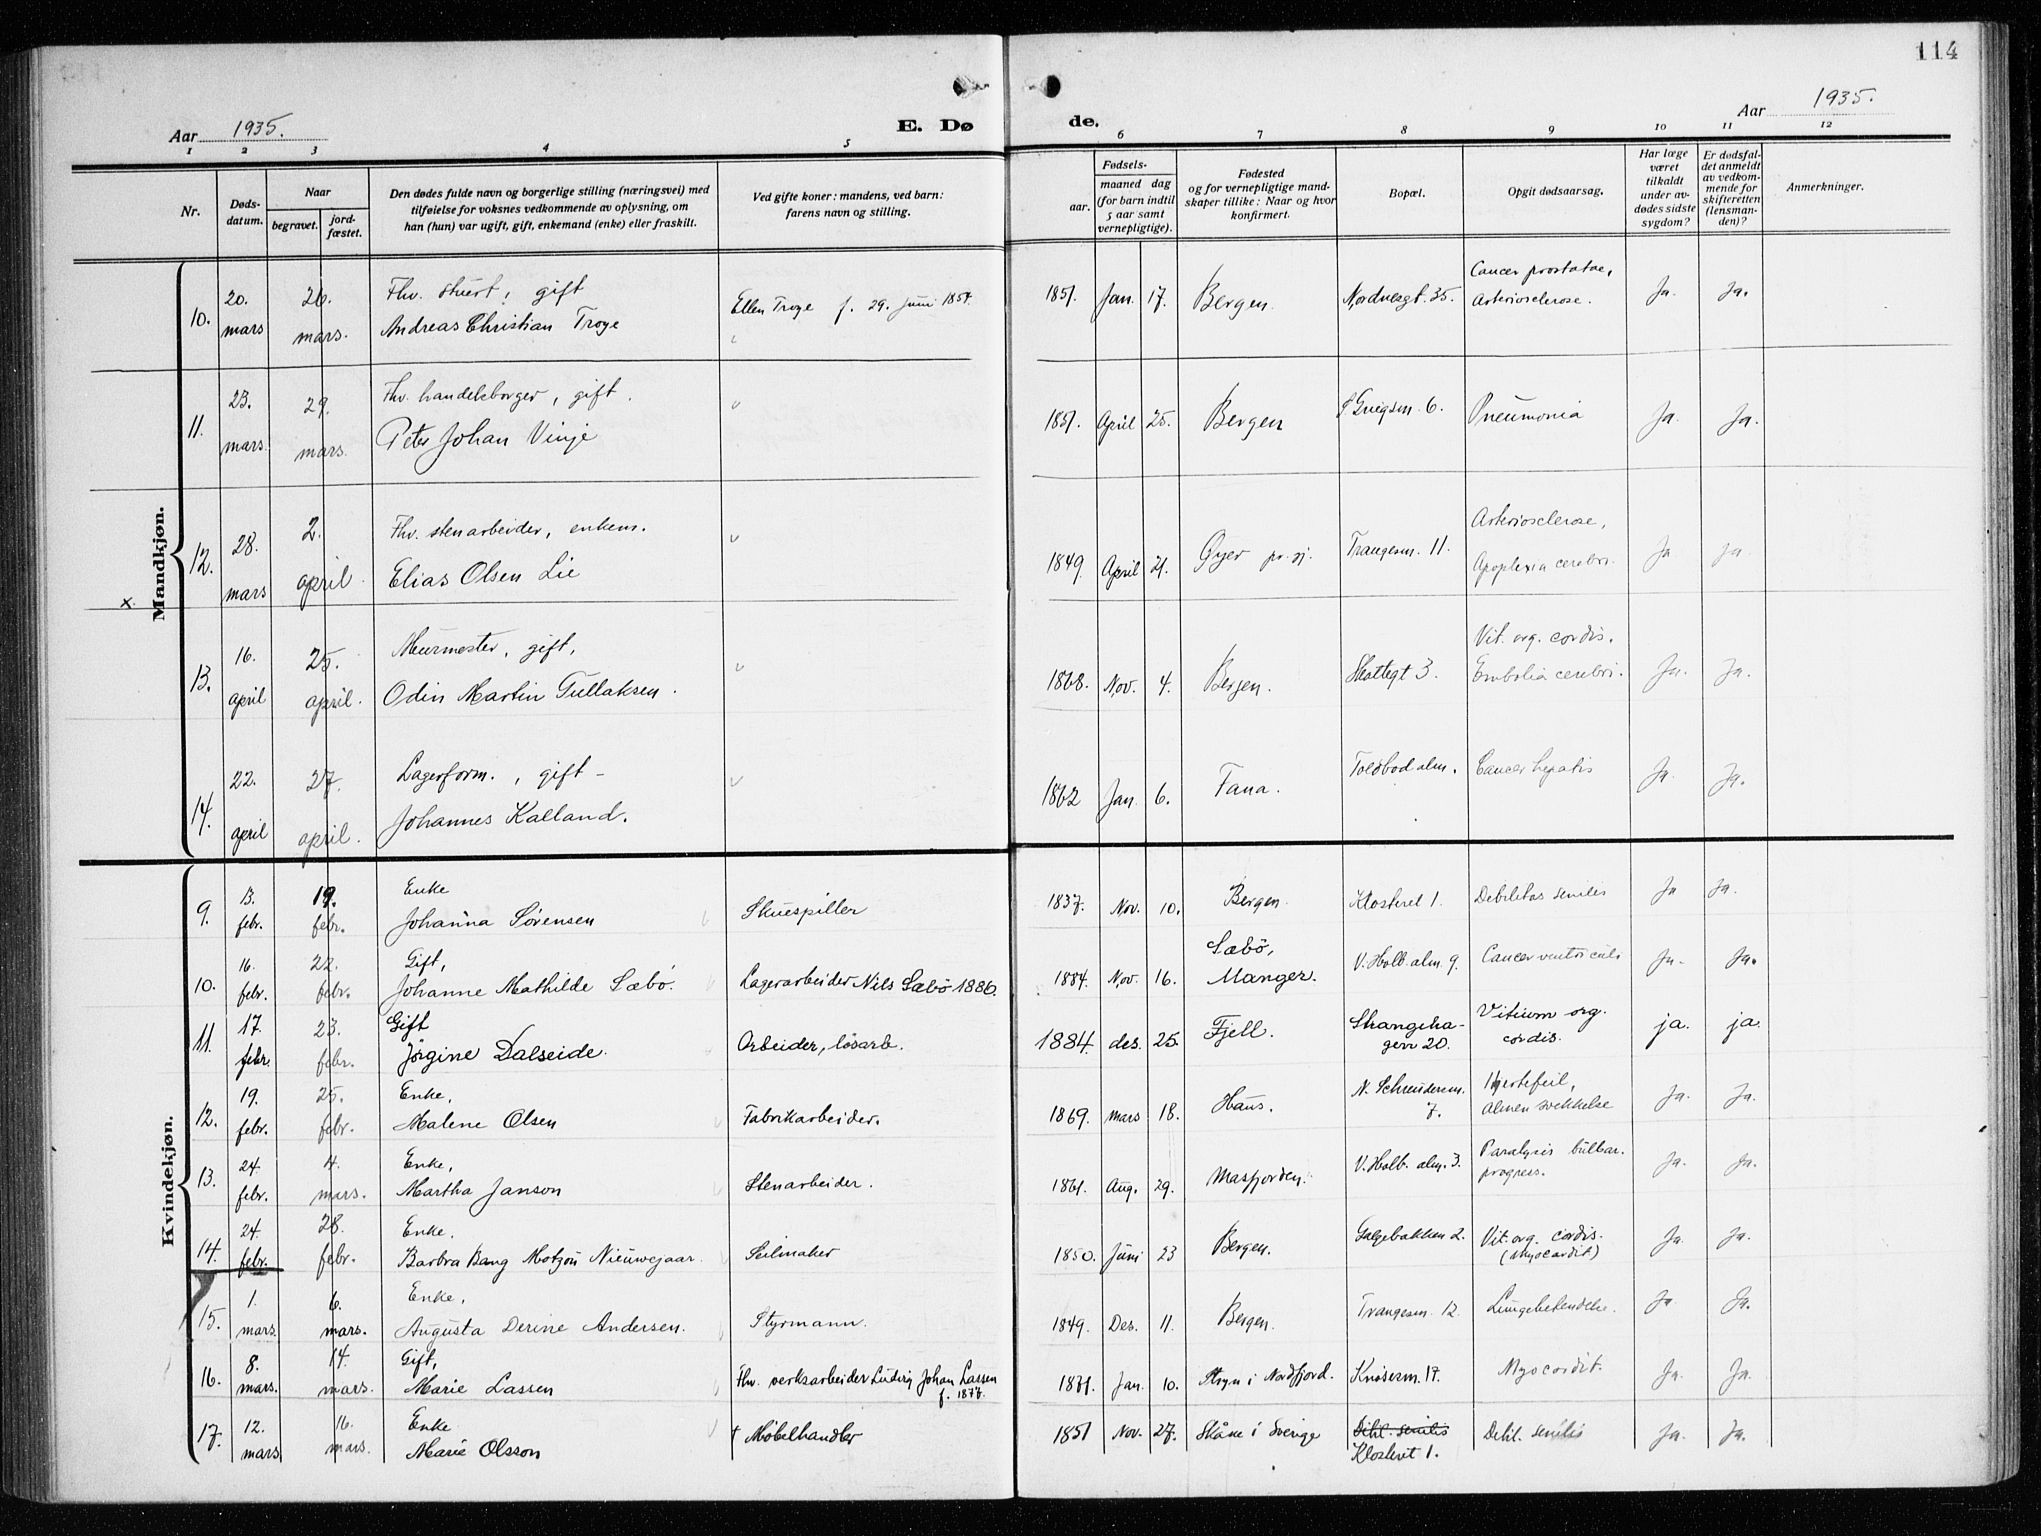 114
Aar 1935.
E. Dø
de.
Aar 1935.
1 2 3 4 5 6 7 8 9 10 11 12
Nr.
Døds-
datum.
Naar
begravet.
jord-
fæstet.
Den dødes fulde navn og borgerlige stilling (næringsvei) med
tilføielse for voksnes vedkommende av oplysning, om
han (hun) var ugift, gift, enkemand (enke) eller fraskilt.
Ved gifte koner: mandens, ved barn:
farens navn og stilling.
Fødsels-
aar.
maaned dag
(for barn indtil
5 aar samt
vernepligtige).
Fødested
og for vernepligtige mand-
skaper tillike: Naar og hvor
konfirmert.
Bopæl.
Opgit dødsaarsag.
Har læge
været
tilkaldt
under av-
dødes sidste
sygdom?
Er dødsfal-
det anmeldt
av vedkom-
mende for
skifteretten
(lensman-
den)?
Anmerkninger.
Mandkjøn.
10. 20. mars 26. mars. Fhv. stuert, gift
Andreas Christian Troye
Ellen Troye f. 29. Juni 1854.
1851. Jan. 17. Bergen. Nordnesgt. 35. Cancer prostatae,
Arteriosclerose. Ja. Ja.
11. 23. mars. 29. mars. Fhv. handelsborger, gift.
Peter Johan Vinje
1851. April 25. Bergen Griegsm. 6. Pneumonia Ja. Ja.
12. 28. mars 2. april. Fhv. stenarbeider, enkem.
Elias Olsen Lie
1849. April 21. Øyer pr. gj. Trangesm. 11. Arteriosclerose,
Apoplexia cerebri. Ja Ja.
x.
13. 16. april 25. april. Murmester, gift,
Odin Martin Tullaksen.
1868. Nov. 4. Bergen. Skottegt 3. Vit. org. cordis.
Embolia cerebri. Ja. Ja.
14. 22. april 27. april. Lagerform., gift -
Johannes Kalland.
1862 Jan. 6. Fana. Toldbodalm. Cancer hepatis Ja. Ja.
Kvindekjøn.
9. 13. febr. 19. febr. Enke
Johanna Sørensen Skuespiller
1837. Nov. 10. Bergen. Klosteret 1. Debilitas senilis Ja Ja.
10. 16. febr. 22. febr. Gift,
Johanne Mathilde Sæbö. Lagerarbeider Nils Sæbö 1886.
1884. Nov. 16. Sæbö,
Manger. V. Holb. alm. 9. Cancer ventriculi Ja. Ja.
11. 17. febr. 23. febr. Gift
Jörgine Dalseide. Arbeider, lösarb.
1884. des. 25. Fjell. Strangeha-
gen 20. Vitium org.
cordis. ja. ja.
12. 19. febr. 25. febr. Enke,
Malene Olsen Fabrikarbeider.
1869. mars 18. Haus. N. Schreudersm.
7. Hjertefeil,
almen svekkelse Ja. Ja.
13. 24. febr. 4. mars. Enke,
Martha Janson Stenarbeider.
1861. Aug. 29. Masfjorden. V. Holb. alm. 3. Paralysis bulbar.
progress. Ja. Ja.
14. 24. febr. 28. febr. Enke.
Barbra Bang Motzau Nieuwejaar. Seilmaker
1850. Juni 23 Bergen. Galgebakken 2. Vit. org. cordis.
(Myocardit) Ja. Ja.
15. 1. mars. 6. mars. Enke,
Augusta Derine Andersen. Styrmann.
1849. Des. 11. Bergen. Trangesm. 12. Lungebetendelse. Ja. Ja.
16. 8. mars. 14. mars. Gift,
Marie Lassen Fhv. verksarbeider Ludvig Johan Lassen
f. 1877.
1871. Jan. 10. Stryn i Nordfjord. Knösesm. 17. Myocardit. Ja. Ja.
17. 12. mars 16. mars. Enke
Marie Olsson † Møbelhandler
1851 Nov. 27. Skåne i Sverige Debil. senilis
Klosteret 1. Debil. senilis Ja. Ja.